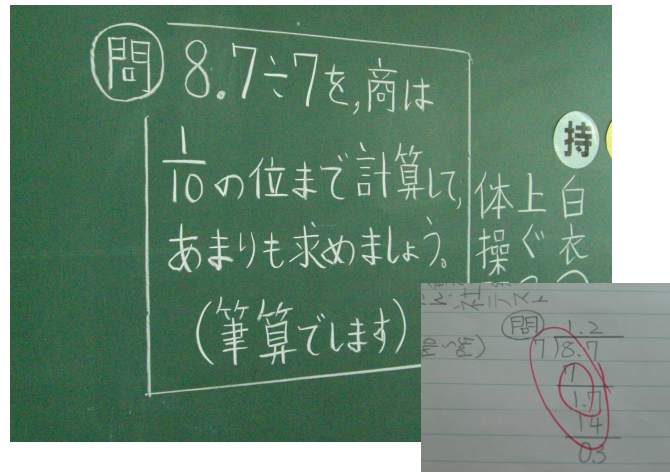 問 8.7÷7を,商は
1/10の位まで計算して,
あまりも求めましょう。
(筆算でします)
持
白衣
上ぐ
体操
テスト
問
1.2
7)8.7
7
1.7
14
0.3